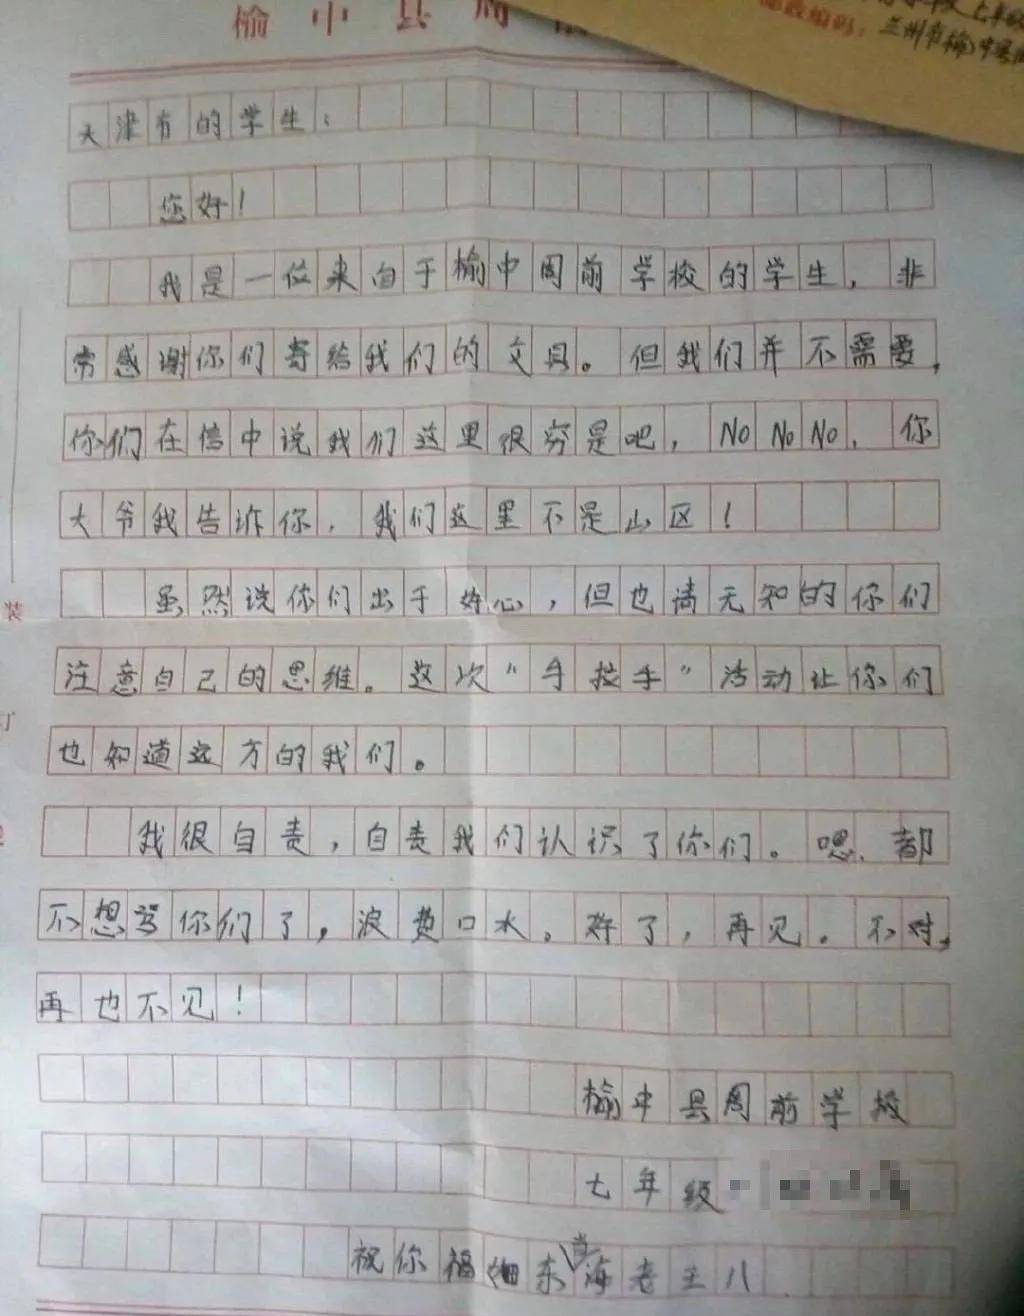 榆中县周
邮政编码：
兰州市榆中县周
天津有的学生：
您好！
我是一位来自于榆中周前学校的学生，非
常感谢你们寄给我们的文具。但我们并不需要，
你们在信中说我们这里很穷是吧，NO NO NO，你
大爷我告诉你，我们这里不是山区！
虽然说你们出于好心，但也请无知的你们
注意自己的思维。这次“手拉手”活动让你们
也知道远方的我们。
我很自责，自责我们认识了你们。嗯，都
不想骂你们了，浪费口水。好了，再见。不对，
再也不见！
榆中县周前学校
七年级
祝你福如东海当老王八
装
订